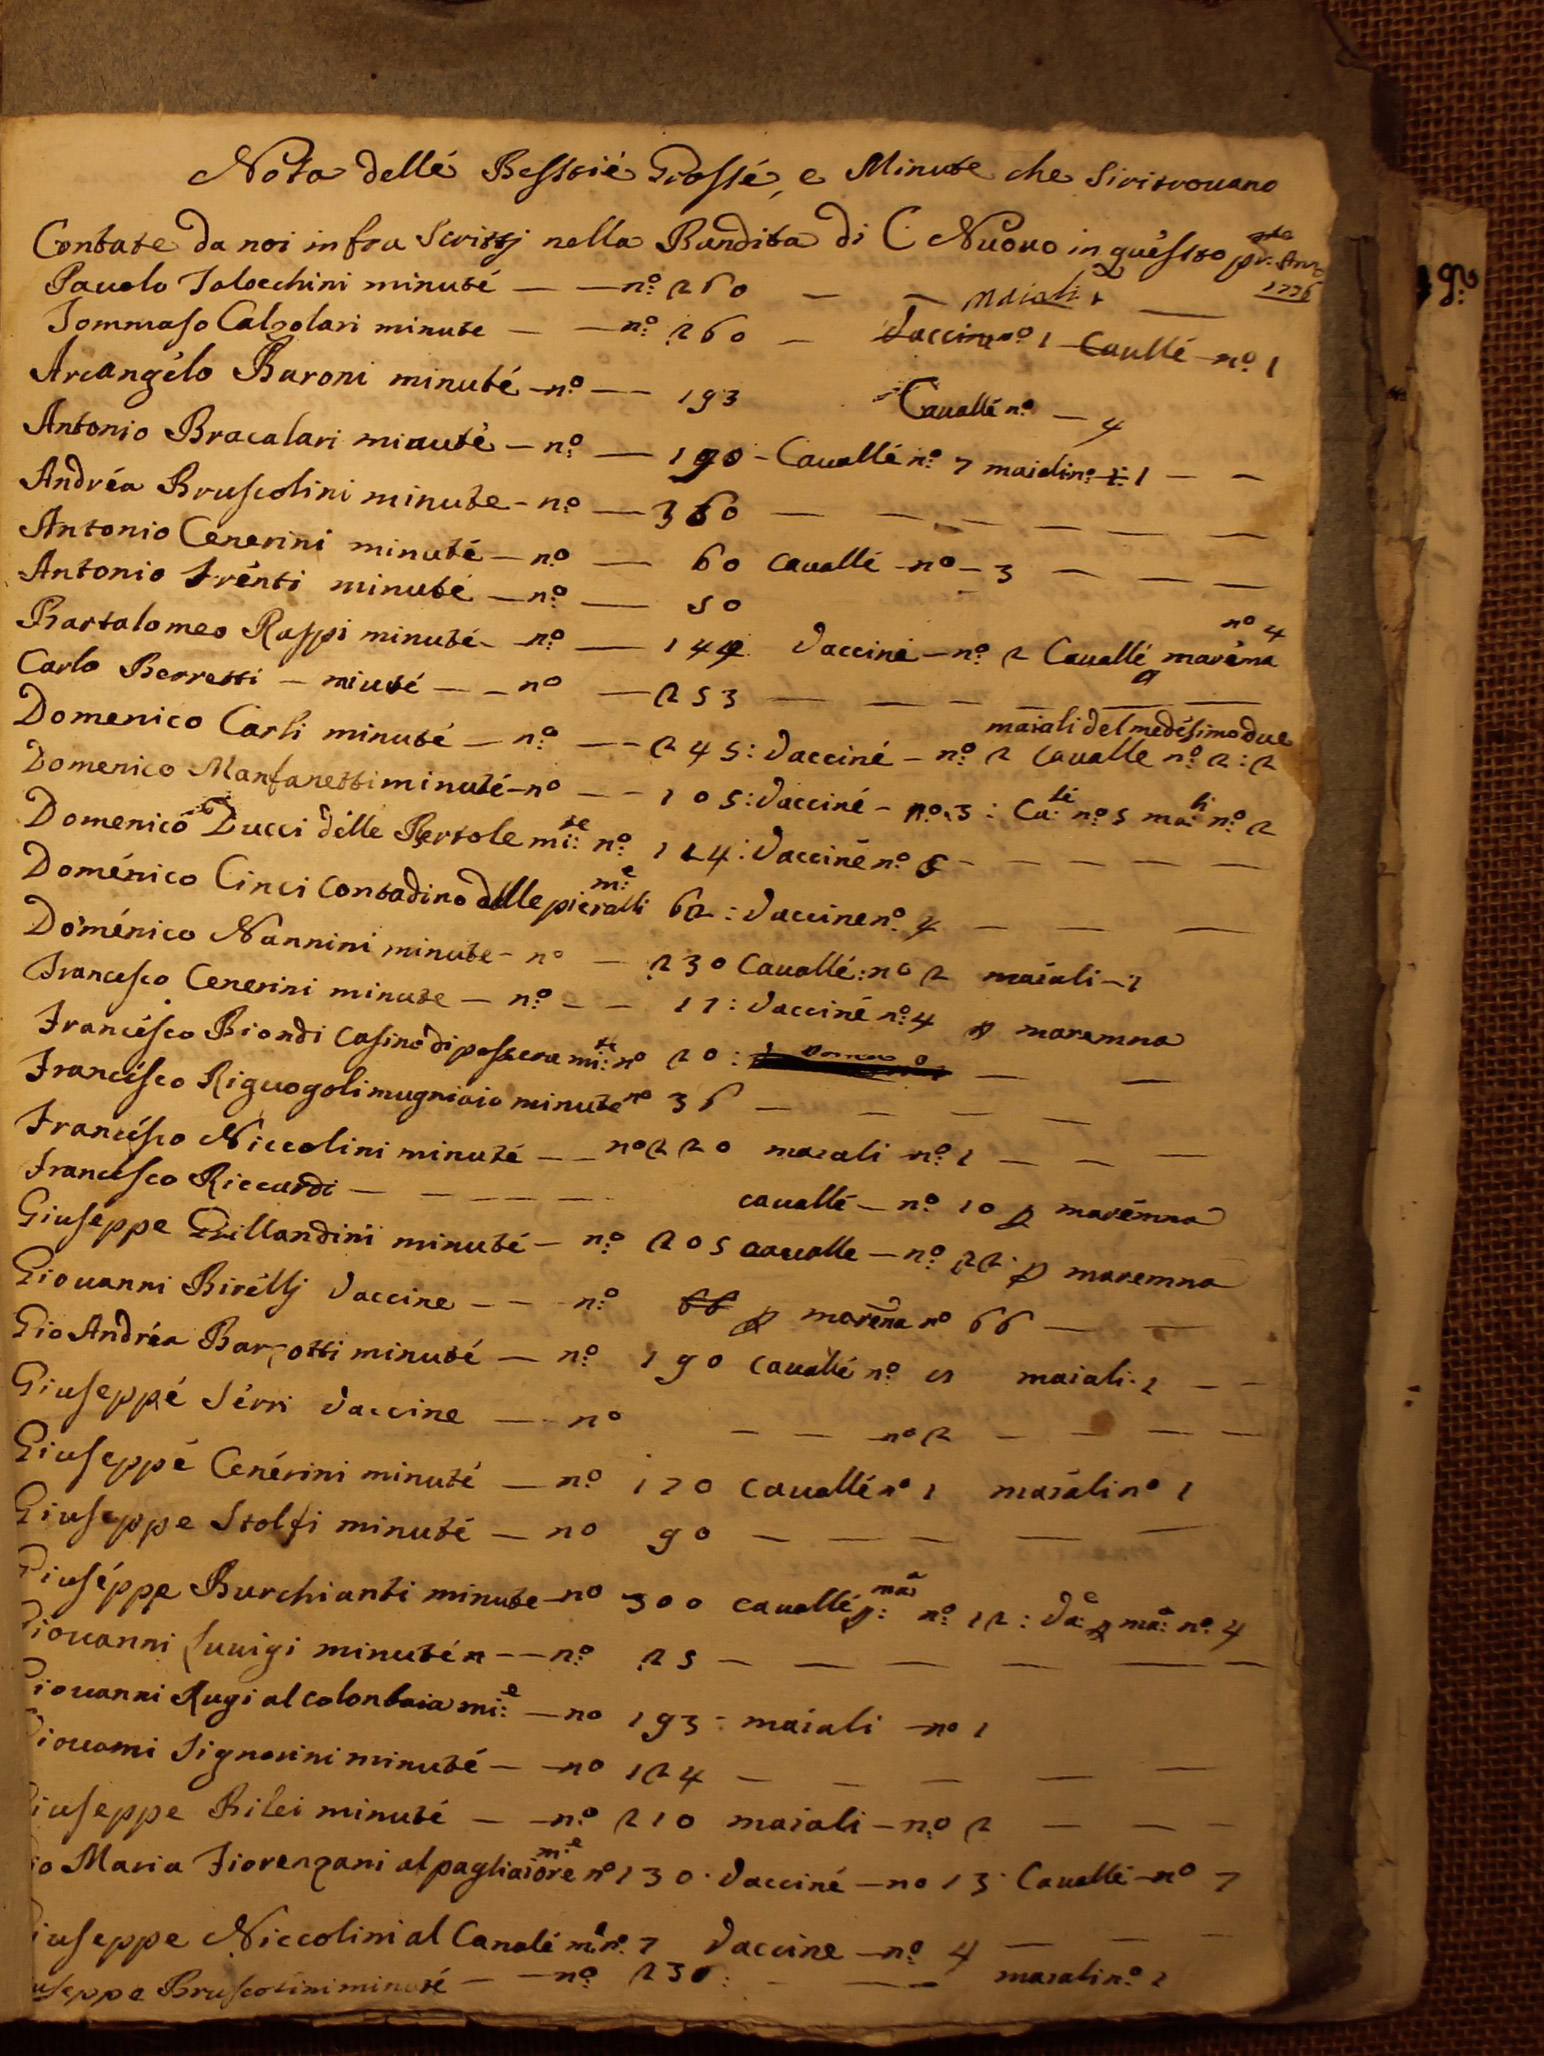 Nota dellé Besstié Grossé, e Minute che si ritrovano
Contate da noi infra Scritti nella Bandita di C Nuovo in quessto pr: Anno 1776
Pauolo Talocchini minuté — — n.º 260 — — Maiali 1 —
Tommaso Calzolari minute — — n.º 260 — Vaccine nº 1 Cavallé — n.º 1
Arcangélo Baroni minuté — n.º — 193 Cavallé n.º — 4
Antonio Bracalari minuté — n.º — 190 - Cavallé n.º 7 maialin.º 1 — —
Andréa Bruscolini minute - n.º — 360 — — — — — —
Antonio Cenerini minuté — n.º — 60 Cavallé — nº — 3 — — —
Antonio Trénti minuté — n.º — 50
Bartalomeo Rappi minuté — n.º — 144 Vacciné — n.º 2 Cavallé p maréma nº 4
Carlo Berretti — miuté — — nº — 253 — — — — — —
maiali del medésimo due
Domenico Carli minuté — n.º — — 245: Vacciné — n.º 2 Cavalle n.º 2:2
Domenico Manfanetti minuté — nº — — 105: Vacciné — n.º 3: Ca:lé n.º 5 ma:li n.º 2
Domenico Ducci délle Bertole mi:te n.º 124: Vacciné n.º 6 — — — — —
Doménico Cinci Contadino delle pieralli m:e 62: Vaccine n.º 4 — — —
Doménico Nannini minute — nº — 230 Cavallé: nº 2 maiali — 1
Francesco Cenerini minute — n.º — — 11: Vacciné n.º 4 p maremna
Francésco Biondi Casino di pesscra mi:te nº 20: — —
Francésco Riguogoli mugniaio minute nº 36 — — — —
Francésco Niccolini minuté — — nº 220 maiali n.º 1 — — —
Francesco Riccardi — — — — — cavallé — n.º 10 p marémna
Giuseppe Grillandini minuté — n.º 205 cavalle — n.º 22 p maremna
Giovanni Birélli Vaccine — — n.º 66 p maréna nº 66 — —
Gio Andréa Barzotti minuté — n.º 190 Cavallé n.º 5 maiali. 1 — —
Giuseppé Sérri Vaccine — — nº — — nº 2 — — — —
Giuseppé Cenérini minuté — n.º 170 Cavallé nº 1 maiali nº 1
Giuseppe Stolfi minuté — nº 90 — — — — —
Giuséppe Burchianti minute — nº 300 cavallé p: maa n.º 12: Va:e p ma:a n.º 4
Giovanni Luuigi minuté n — — n.º 25 — — — — — —
iovanni Rugi al colonbaia mi:e — nº 193: maiali — nº 1
iovanni Signorini minuté — — nº 124 — — — — —
iuseppe Bilei minuté — — n.º 210 maiali — n.º 2 — — —
io Maria Fiorenzani al pagliaiore m:e nº 130. Vacciné — nº 13. Cavallé — nº 7
iuseppe Niccolini al Canalé m:e n.º 7 Vaccine — n.º 4 — — —
useppe Bruscolini minuté — — n.º 230: — — maiali n.º 1